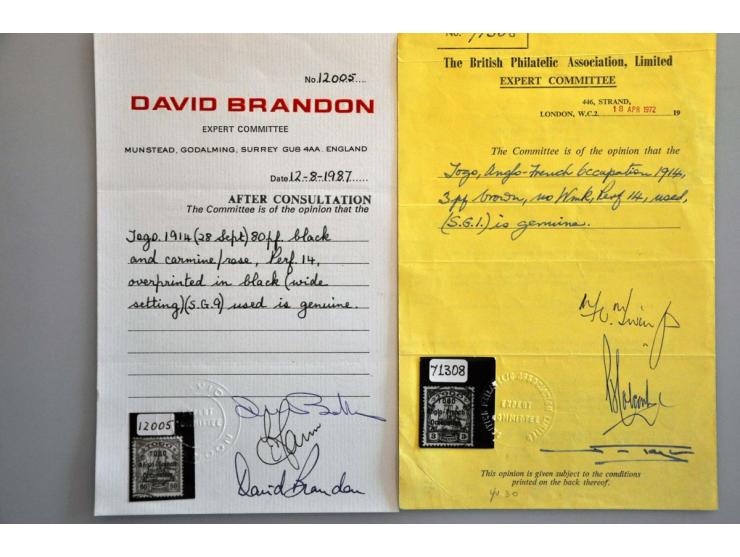 No. 12005....
DAVID BRANDON
EXPERT COMMITTEE
MUNSTEAD, GODALMING, SURREY GU8 4AA. ENGLAND
Date 12-8-1987......
AFTER CONSULTATION
The Committee is of the opinion that the
Togo. 1914 (28 Sept) 80pf. black
and carmine/rose, Perf. 14,
overprinted in black (wide
setting) (S.G.9) used is genuine.
David Brandon
12005
TOGO
Anglo-French
Occupation
No. 71308
The British Philatelic Association, Limited
EXPERT COMMITTEE
446, STRAND,
LONDON, W.C.2. 18 APR 1972 19
The Committee is of the opinion that the
Togo, Anglo-French Occupation 1914,
3pf brown, no Wmk, Perf 14, used,
(S.G.1.) is genuine.
71308
TOGO
Anglo-French
Occupation
EXPERT
COMMITTEE
This opinion is given subject to the conditions
printed on the back thereof.